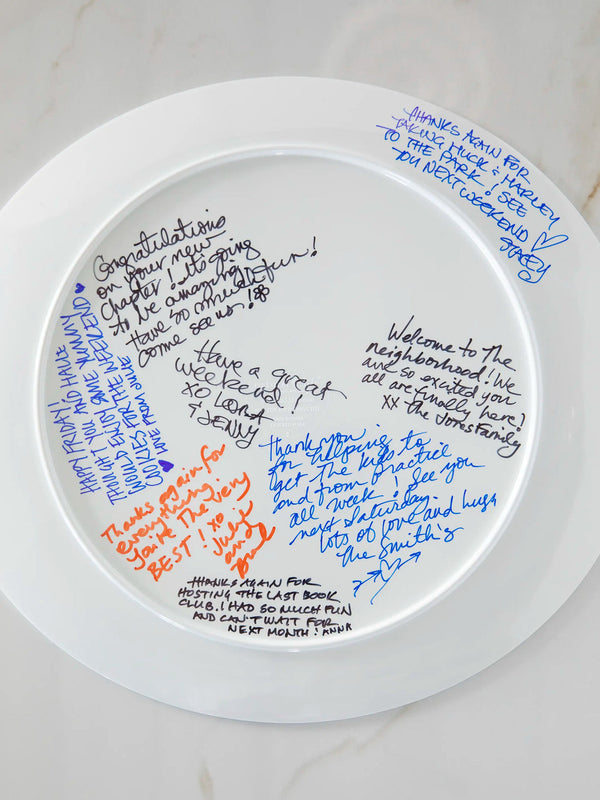 THANKS AGAIN FOR
TAKING HUCK & HARLEY
TO THE PARK! SEE
YOU NEXT WEEKEND ♡
STACEY
Congratulations
on your new
chapter! It's going
to be amazing
Have so much fun!
come see us!
HAPPY FRIDAY!
THOUGHT YOU AND HAVE
WOULD ENJOY SOME YUMMY
COOKIES FOR THE WEEKEND ♥
♥ LOVE FROM JULIE
Have a great
weekend!
XO LORA
& JENNY
Welcome to the
neighborhood! We
are so excited you
all are finally here!
XX - The Jones Family
Thank you
for helping
get the kids to
and from practice
all week! See you
next Saturday.
Lots of love and hugs
The Smith's
Thanks again for
everything.
You're the very
BEST! XO
Julie
and
THANKS AGAIN FOR
HOSTING THE LAST BOOK
CLUB. I HAD SO MUCH FUN
AND CAN'T WAIT FOR
NEXT MONTH! ANNA